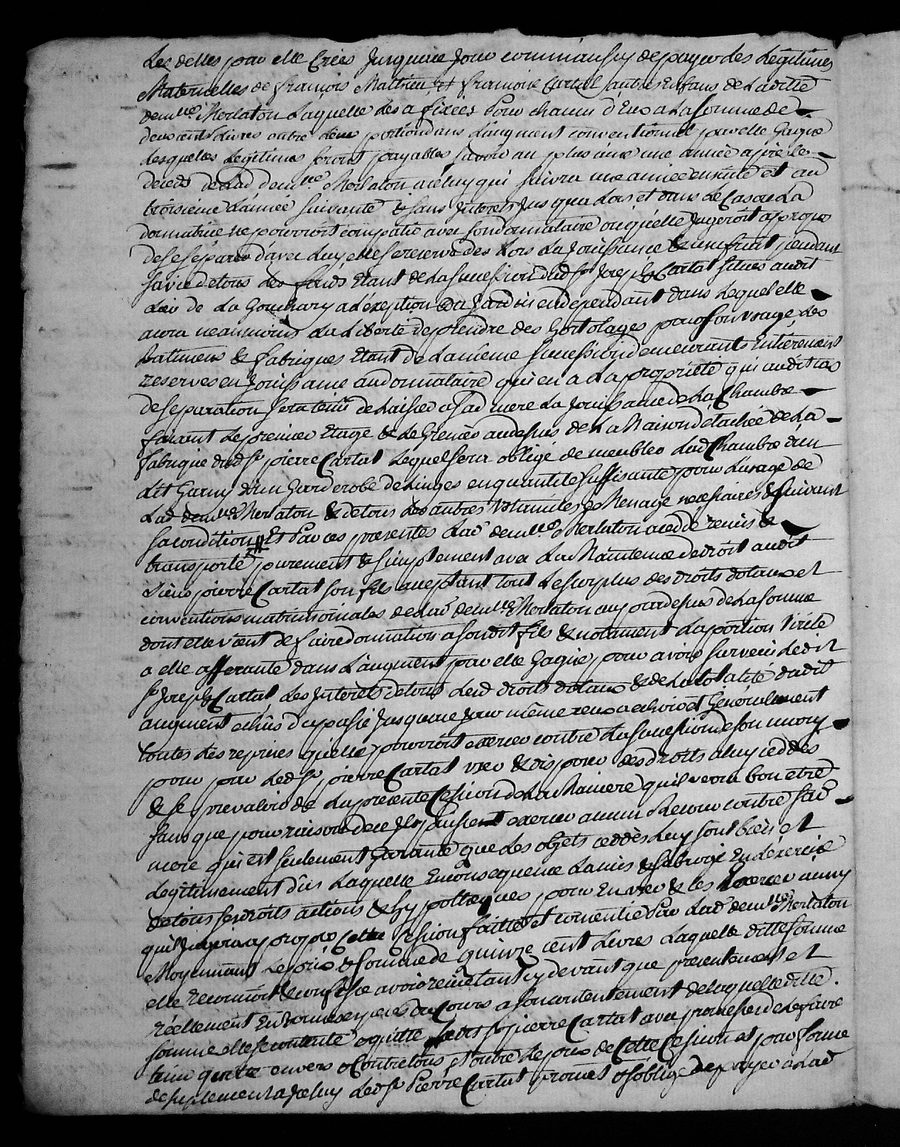 Les dettes par elle Crées Jusqu'a ce Jour comm'aussy de payer les Legitimes
Maternelles de françois Mathieu et françoise Cartal autres Enfans de Laditte
dem.lle Merlaton Laquelle les a fixées pour chacun d'Eux a La somme de
deux cents Livres outre leur portion dans L'augment conventionnel par elle Gagné
lesquelles Legitimes seront payables savoir au plus ainé une année après le
deces de Lad dem.lle Merlaton a celuy qui suivra une année ensuite et au
troisième L'année suivante & sans Interets Jusqu'a Lors et dans Le Cas ou La
donnatrice ne pourroit compatir avec son donnataire ou qu'elle Jugeroit apropos
de se séparer d'avec Luy elle se reserve des Lors La Jouissance & usufruit pendant
sa vie de tous les fonds Etant de La succession dud sr Joseph Cartal situés audit
Lieu de La Gouchary a L'exeption du Jardin en dependant dans Lequel elle
aura neanmoins La Liberté de prendre des hortolages pour son usage Les
batimens & fabriques Etant de La même succession demeurants Entierement
reservés en Jouissance au donnataire qui en a La propriété qui audit cas
de separation sera tenu de Laisser a Sad mere La Jouissance de La Chambre
faisant Le premier Etage & Le Grenier au dessus de La Maison détachée de La
fabrique dud sr pierre Cartal Lequel sera obligé de meubler Lad Chambre d'un
Lit Garny d'un Garderobe de Linges en quantité suffisante pour L'usage de
Lad dem.lle Merlaton & de tous Les autres Votanciles de Menage necessaires & suivant
sa condition Et Par ces presentes Lad dem.lle Merlaton a cedé remis &
transporté purement & simplement avec La Maintenue de droit audit
sieur pierre Cartal son fils acceptant tout Le surplus des droits dotaux et
conventions matrimoniales de Lad dem.lle Merlaton au par dessus de La somme
dont elle vient de faire donnation a son dit fils & notament La portion virile
a elle afferante dans L'augment par elle Gagné pour avoir survecu Ledit
sr Joseph Cartal Les Interets de tous Lesd droits dotaux & de La totalité dudit
augment echus du passé Jusqu'a ce Jour même ceux a echoir et Généralement
toutes Les reprises qu'elle pourroit exercer contre La succession de son mary
pour par Led sr pierre Cartal user & disposer des droits a luy cedés
& se prevaloir de La presente Cession de La Maniere qu'il verra bon etre
sans que pour raison de ce Il puisse exercer aucun Recour contre Sad
mere qui est seulement Garante que Les objets cedés Luy sont bien et
Legitimement dus Laquelle En consequence L'a mis & subrogé En L'exercice
de tous ses droits actions & hypotheques pour En user & les exercer ainsy
qu'il Jugera apropos Cette Cession faitte et consentie Par Lad dem.lle Merlaton
Moyennant Le prix & somme de quinze cent Livres Laquelle ditte somme
elle reconnoit & confesse avoir reçu tant cy devant que presentement et
réellement En bonnes especes du Cours a son contentement de laquelle ditte
somme elle se contente & quitte Ledit sr pierre Cartal avec promesse de Le faire
tenir quitte envers & Contre tous et outre Le prix de Cette Cession et par forme
de suplement a Jcelluy Led sr Pierre Cartal promet & s'oblige de payer a Lad